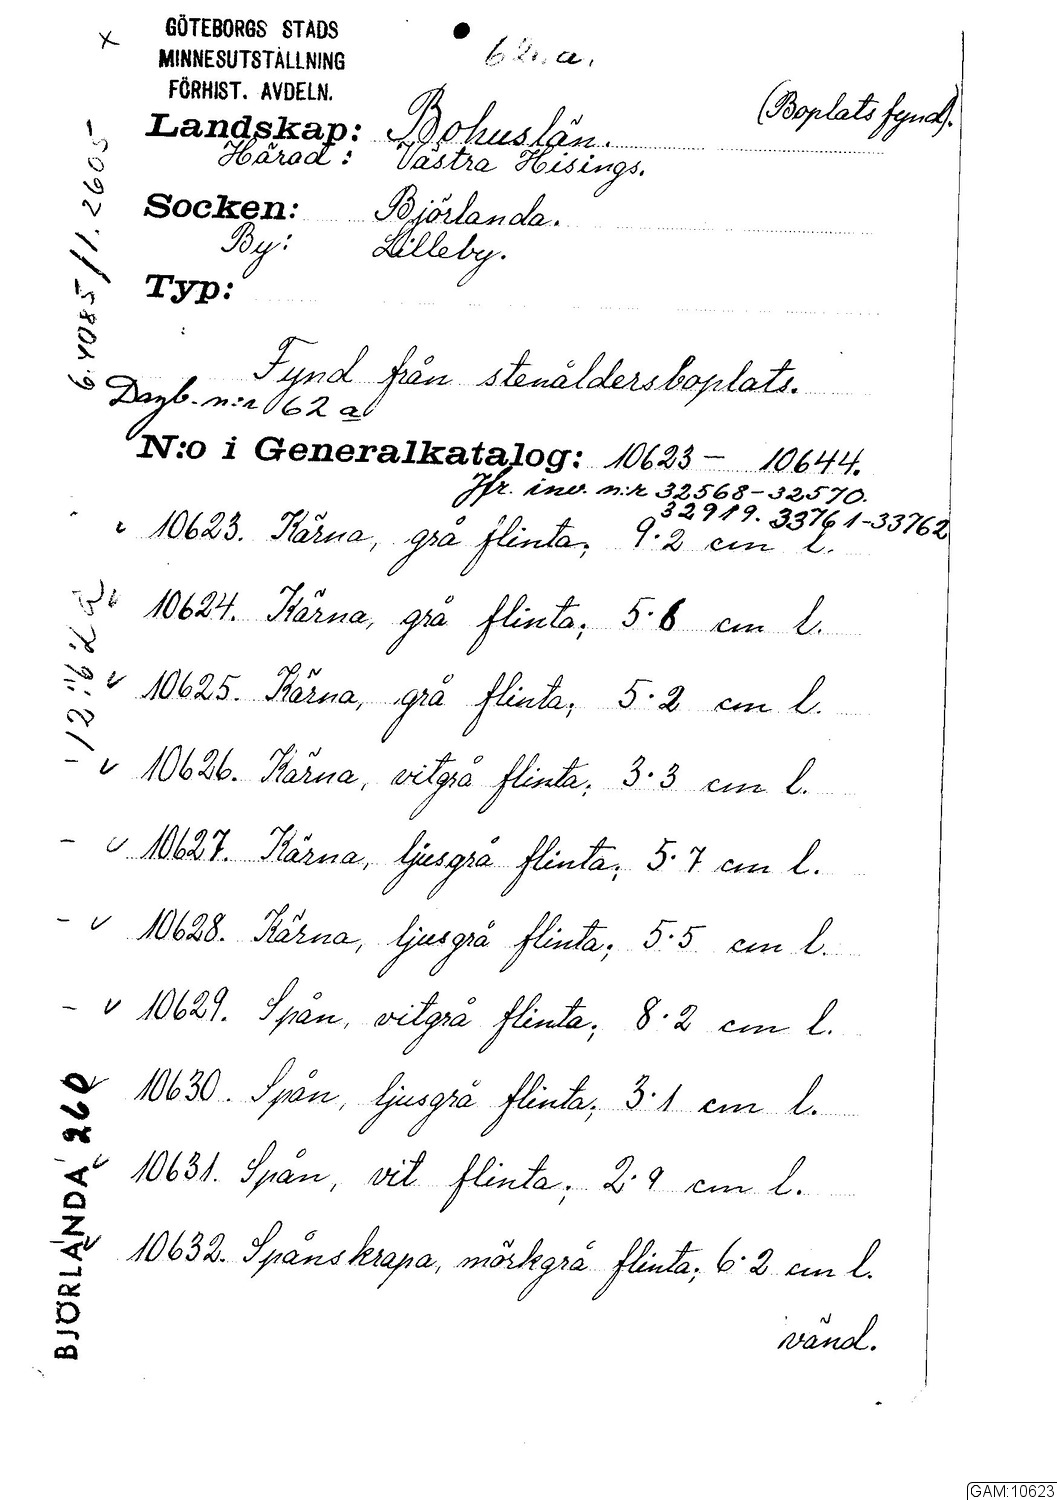 GÖTEBORGS STADS
MINNESUTSTÄLLNING
FÖRHIST. AVDELN.
62 a.
(Boplatsfynd).
Landskap: Bohuslän.
Härad: Västra Hisings.
Socken: Björlanda.
By: Lilleby.
Typ:
Fynd från stenåldersboplats.
Dagb. n:r 62 a
N:o i Generalkatalog: 10623 – 10644.
Jfr. inv. n:r 32568–32570.
32919. 33761–33762
10623. Kärna, grå flinta; 9.2 cm l.
10624. Kärna, grå flinta; 5.6 cm l.
10625. Kärna, grå flinta; 5.2 cm l.
10626. Kärna, vitgrå flinta; 3.3 cm l.
10627. Kärna, ljusgrå flinta; 5.7 cm l.
10628. Kärna, ljusgrå flinta; 5.5 cm l.
10629. Spån, vitgrå flinta; 8.2 cm l.
10630. Spån, ljusgrå flinta; 3.1 cm l.
10631. Spån, vit flinta; 2.9 cm l.
10632. Spånskrapa, mörkgrå flinta; 6.2 cm l.
vänd.
6.4085/1.2605
12:62 a
BJÖRLANDA 260
GAM:10623